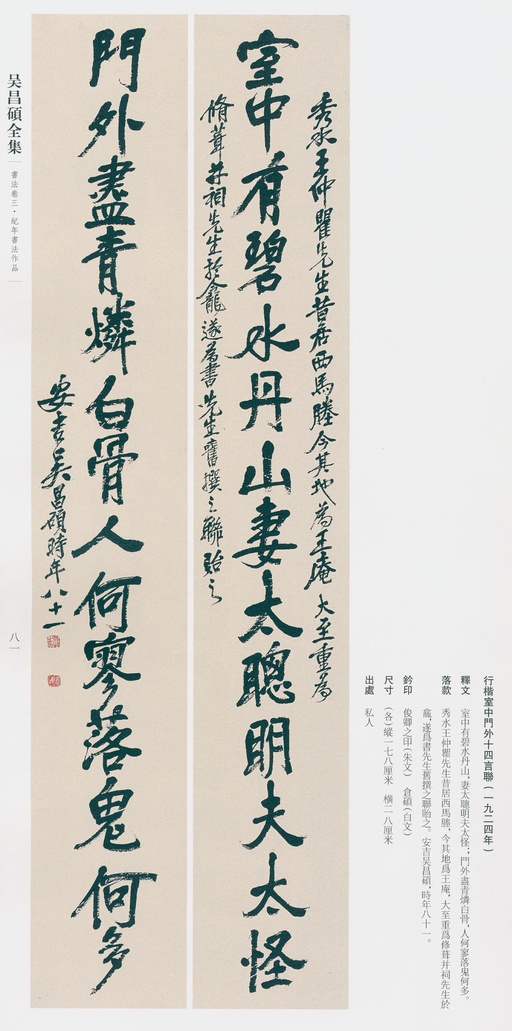 室中有碧水丹山妻太聰明夫太怪
秀水王仲瞿先生昔居西馬塍今其地為王庵大至重為
脩葺并祠先生於龕遂為書先生舊撰之聯貽之
門外盡青燐白骨人何寥落鬼何多
安吉吴昌碩時年八十一
行楷室中門外十四言聯(一九二四年)
釋文 室中有碧水丹山,妻太聰明夫太怪;門外盡青燐白骨,人何寥落鬼何多。
落款 秀水王仲瞿先生昔居西馬塍,今其地爲王庵,大至重爲修葺并祠先生於
龕,遂爲書先生舊撰之聯貽之。安吉吴昌碩,時年八十一。
鈐印 俊卿之印(朱文) 倉碩(白文)
尺寸 (各)縱一七八厘米 横二八厘米
出處 私人
吴昌碩全集
書法卷三·紀年書法作品
八一